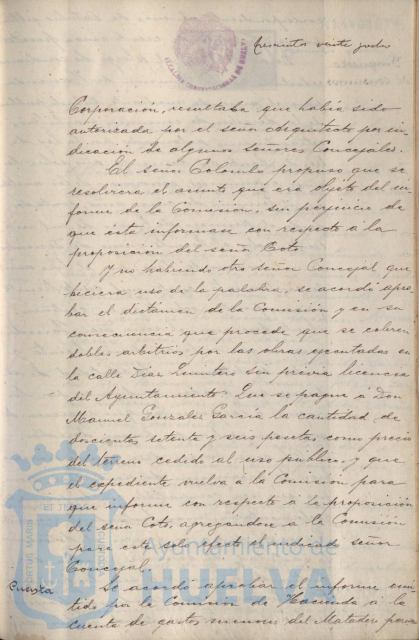 trescientos veinte y ocho
ALCALDIA CONSTITUCIONAL DE HUELVA
Corporación, resultaba que había sido
autorizada por el señor Arquitecto por in-
dicación de algunos señores Concejales.
El señor Colombo propuso que se
resolviera el asunto que era objeto del in-
forme de la Comisión, sin perjuicio de
que ésta informase con respecto á la
proposición del señor Coto.
Y no habiendo otro señor Concejal que
hiciera uso de la palabra, se acordó apro-
bar el dictámen de la Comisión y en su
consecuencia que procede que se cobren
dobles arbitrios por las obras ejecutadas en
la calle sin previa licencia
del Ayuntamiento: Que se pague á Don
Manuel Gonzalez García la cantidad de
doscientas setenta y seis pesetas como precio
del terreno cedido al uso público, y que
el expediente vuelva á la Comisión para
que informe con respecto á la proposición
del señor Coto, agregándose á la Comisión
para este solo efecto el indicado señor
Concejal.
Cuenta
Se acordó aprobar el informe emi-
tido por la Comisión de Hacienda á la
cuenta de gastos menores del Matadero para
Ayuntamiento de
HUELVA